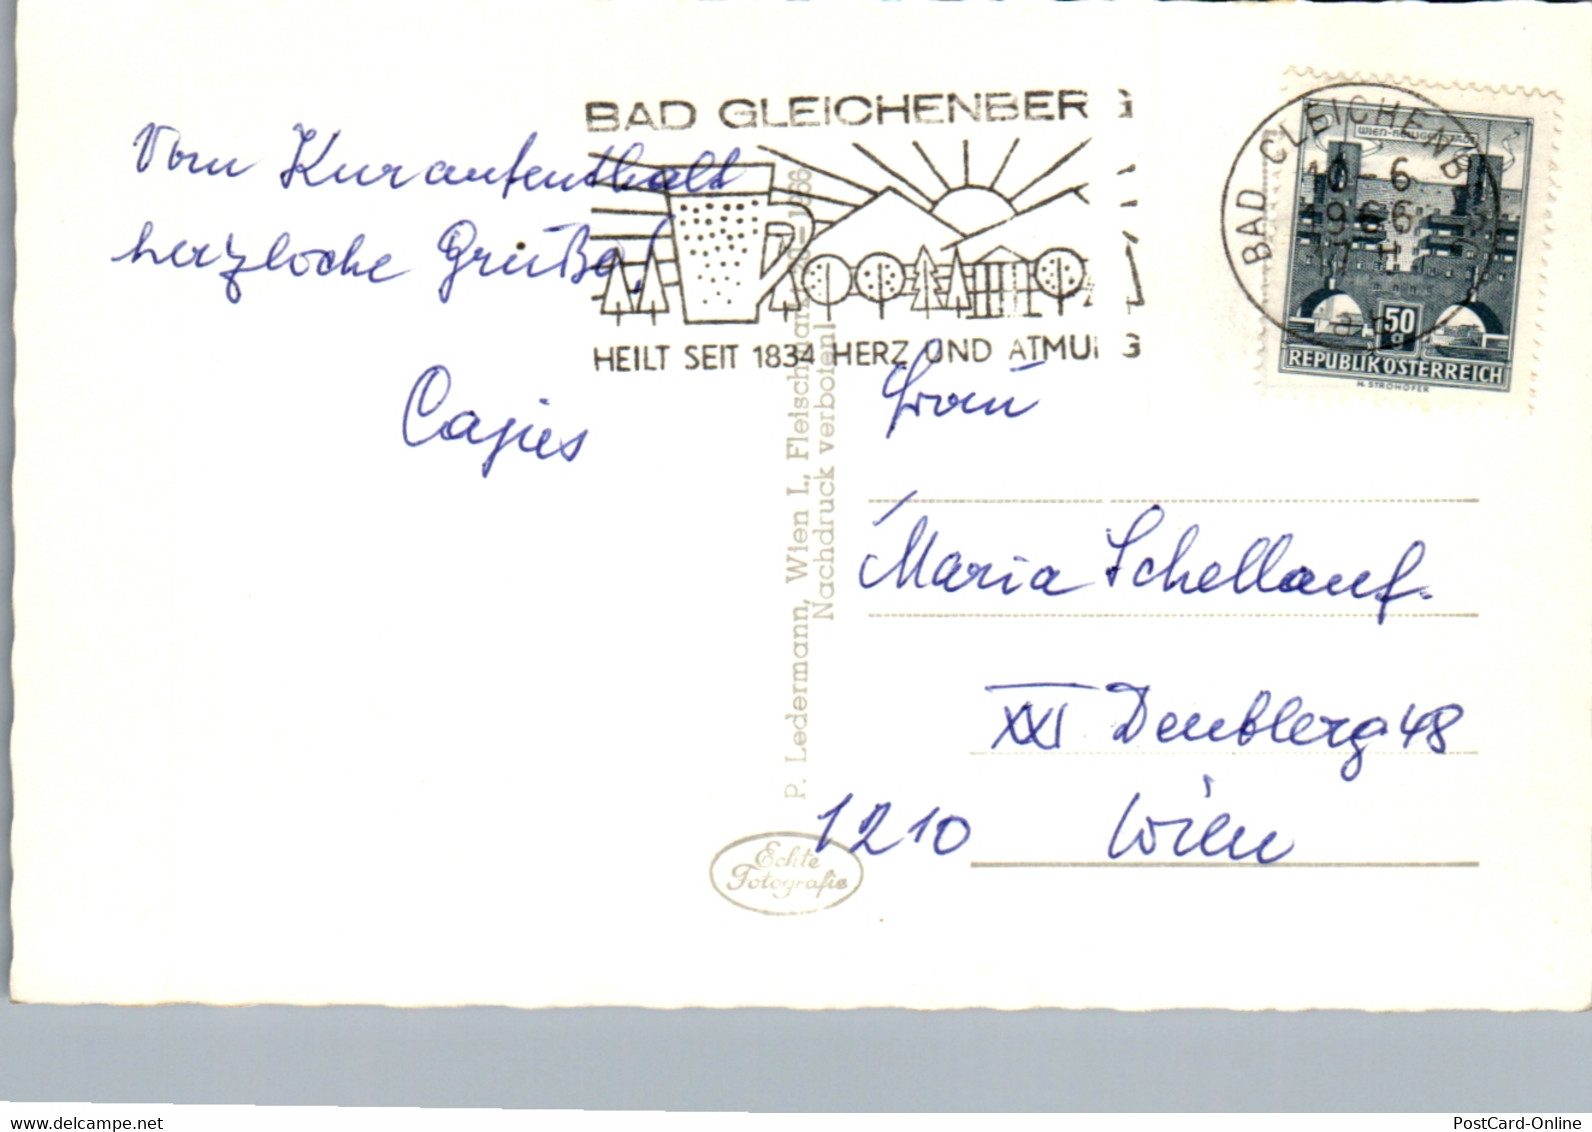 BAD GLEICHENBERG
Vom Kuraufenthalt
herzloche Grüße!
HEILT SEIT 1834 HERZ UND ATMUNG
BAD GLEICHENB
10-6
1966
WIEN-HEILIGENSTADT
50
REPUBLIK ÖSTERREICH
H. STROHOFER
Frau
Maria Schellauf.
XXI 48
1210 Wien
P. Ledermann, Wien I., Fleischmarkt
Nachdruck verboten!
Echte
Fotografie
www.delcampe.net
PostCard-Online